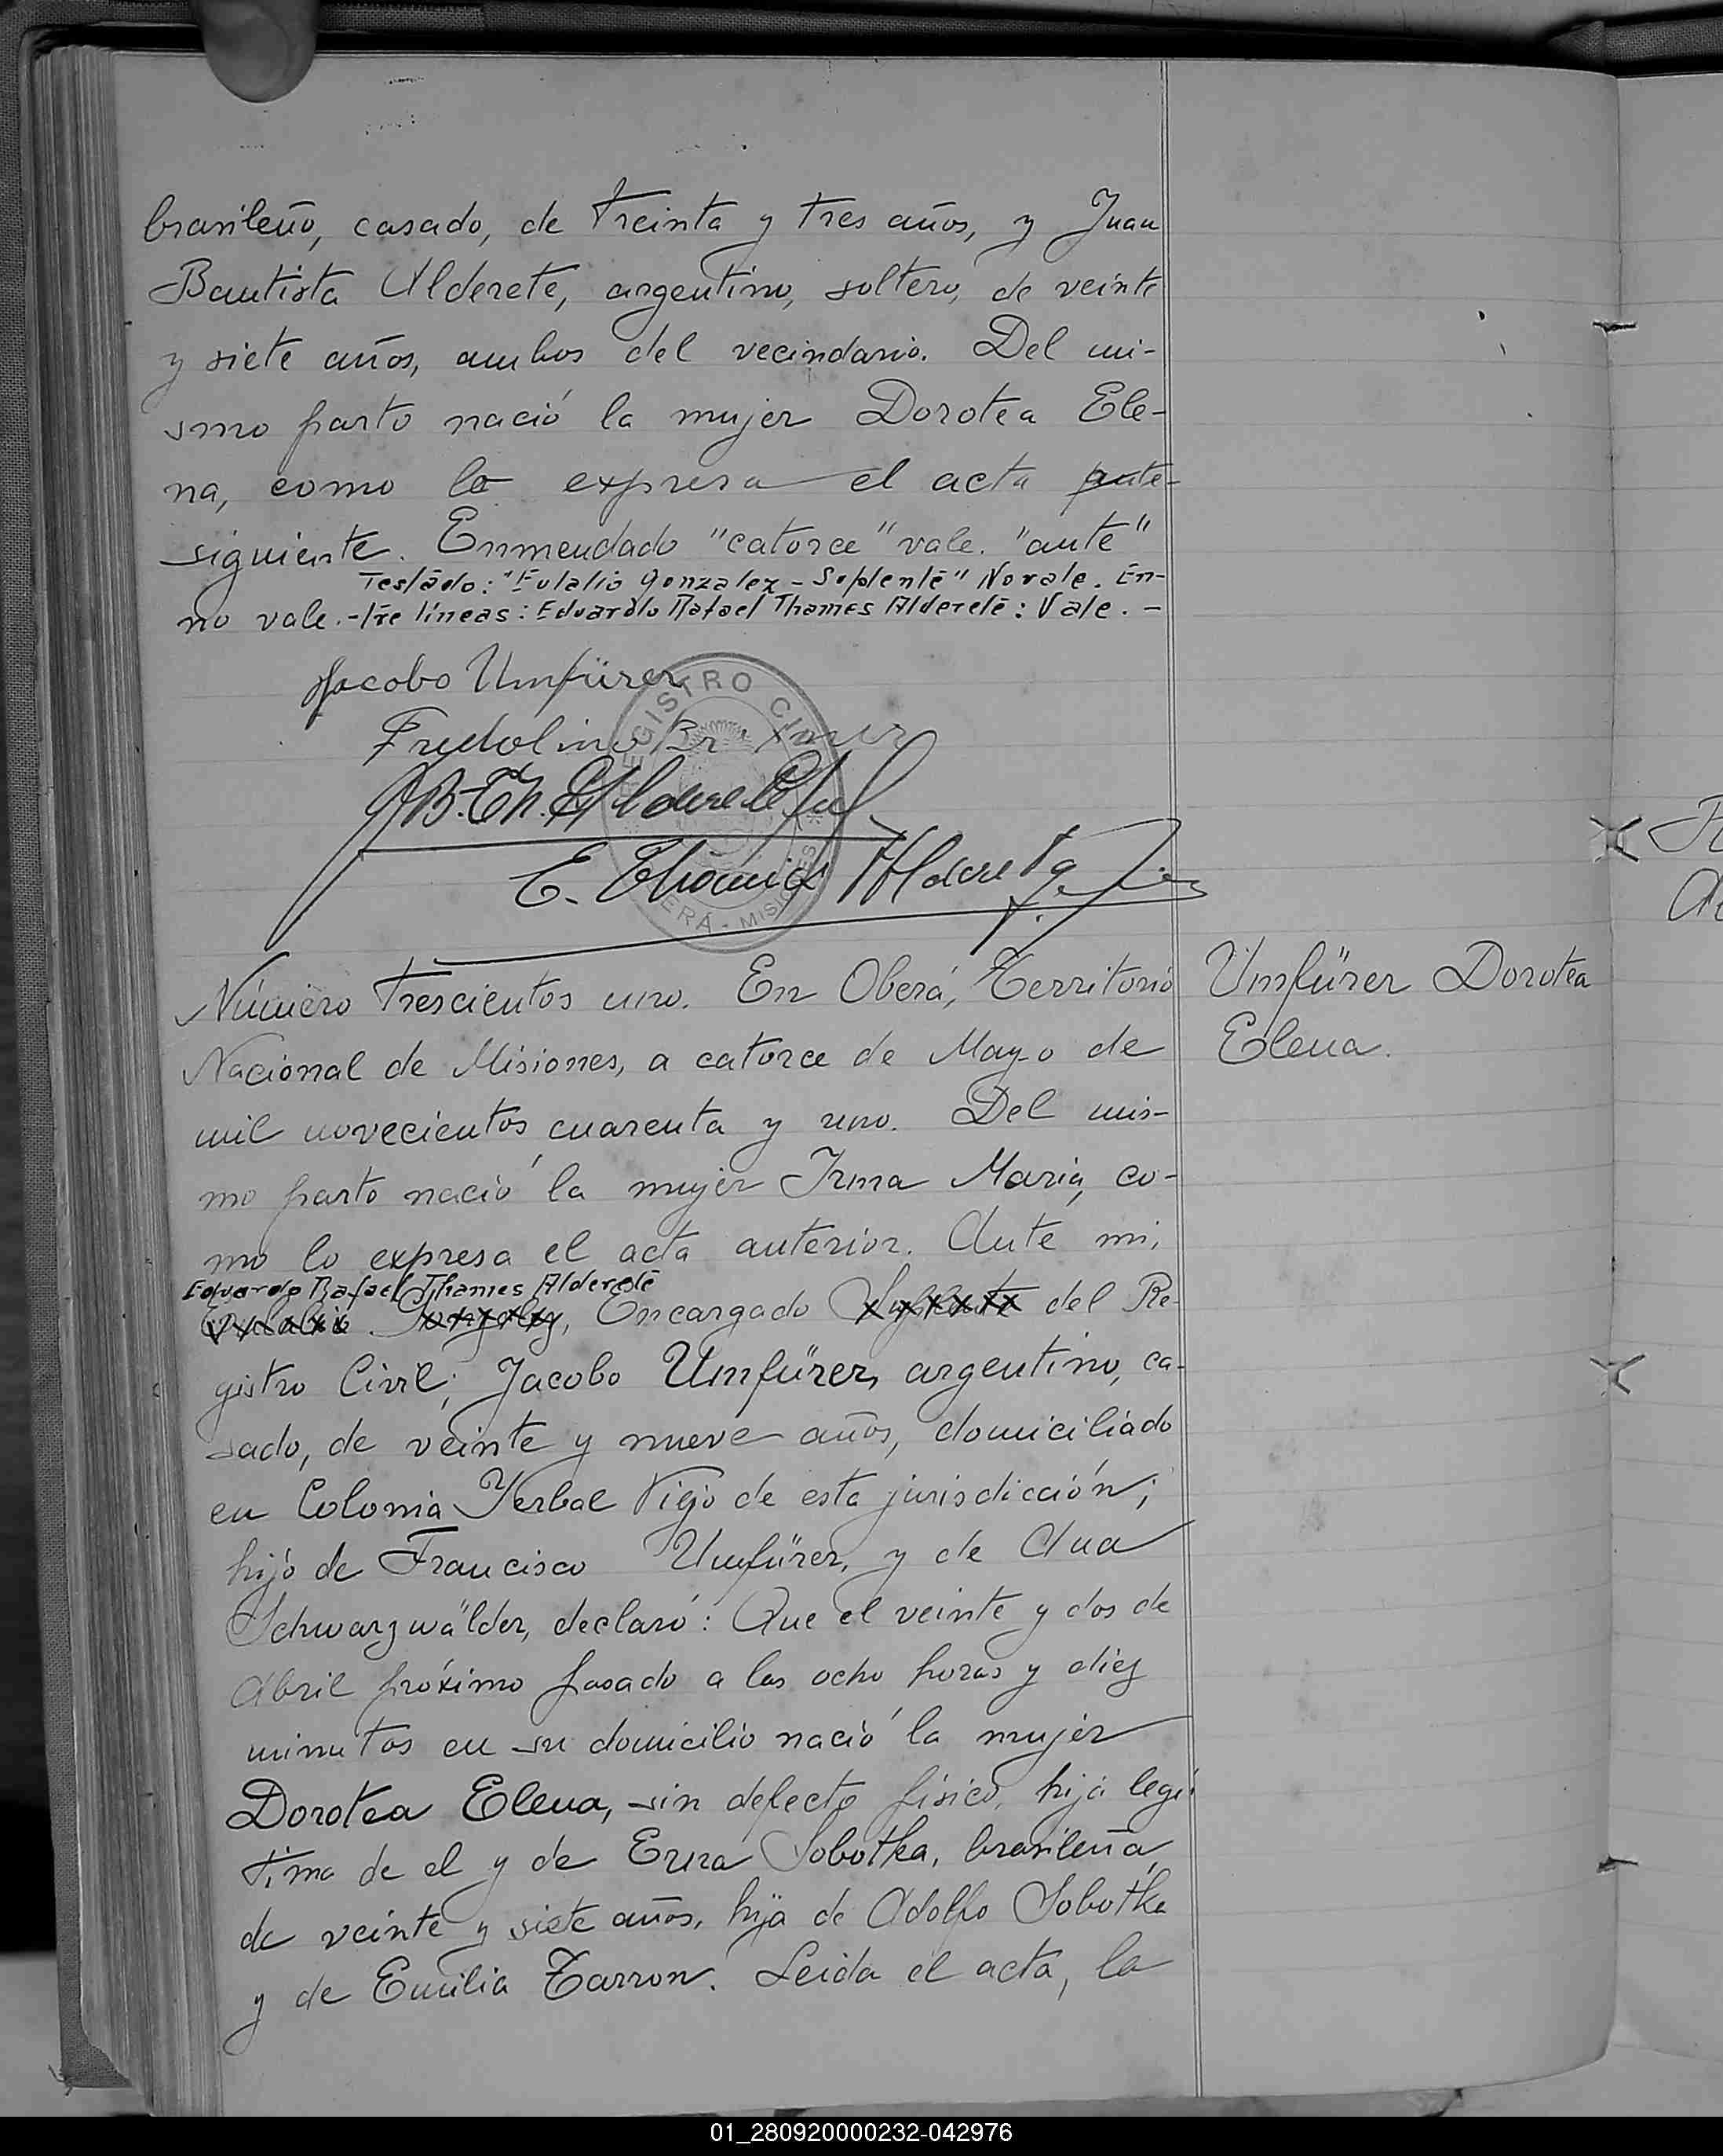 brasileño, casado, de treinta y tres años, y Juan
Bautista Alderete, argentino, soltero, de veinte
y siete años, ambos del vecindario. Del mi-
smo parto nació la mujer Dorotea Ele-
na, como lo expresa el acta ante-
siguiente. Enmendado "catorce" vale. "ante"
Testado: "Eulalio Gonzalez - Suplente" No vale. En-
no vale. -tre líneas: Eduardo Rafael Thames Alderete: Vale. -
Jacobo Umfürer
Fridolino
REGISTRO CIVIL
OBERÁ - MISIONES
J B. Th. Alderete
E. Thames Alderete
Número trescientos uno. En Oberá, Territorio
Nacional de Misiones, a catorce de Mayo de
mil novecientos cuarenta y uno. Del mis-
mo parto nació la mujer Irma María, co-
mo lo expresa el acta anterior. Ante mi,
Eduardo Rafael Thames Alderete
Eulalio Gonzalez, Encargado Suplente del Re-
gistro Civil; Jacobo Umfürer, argentino, ca-
sado, de veinte y nueve años, domiciliado
en Colonia Yerbal Viejo de esta jurisdicción;
hijo de Francisco Umfürer, y de Ana
Schwarzwälder, declaró: Que el veinte y dos de
Abril próximo pasado a las ocho horas y diez
minutos en su domicilio nació la mujer
Dorotea Elena, sin defecto físico, hija legí
tima de el y de Erna Sobotka, brasileña,
de veinte y siete años, hija de Adolfo Sobotka
y de Emilia Tarron. Leida el acta, la
Umfürer Dorotea
Elena.
01_280920000232-042976